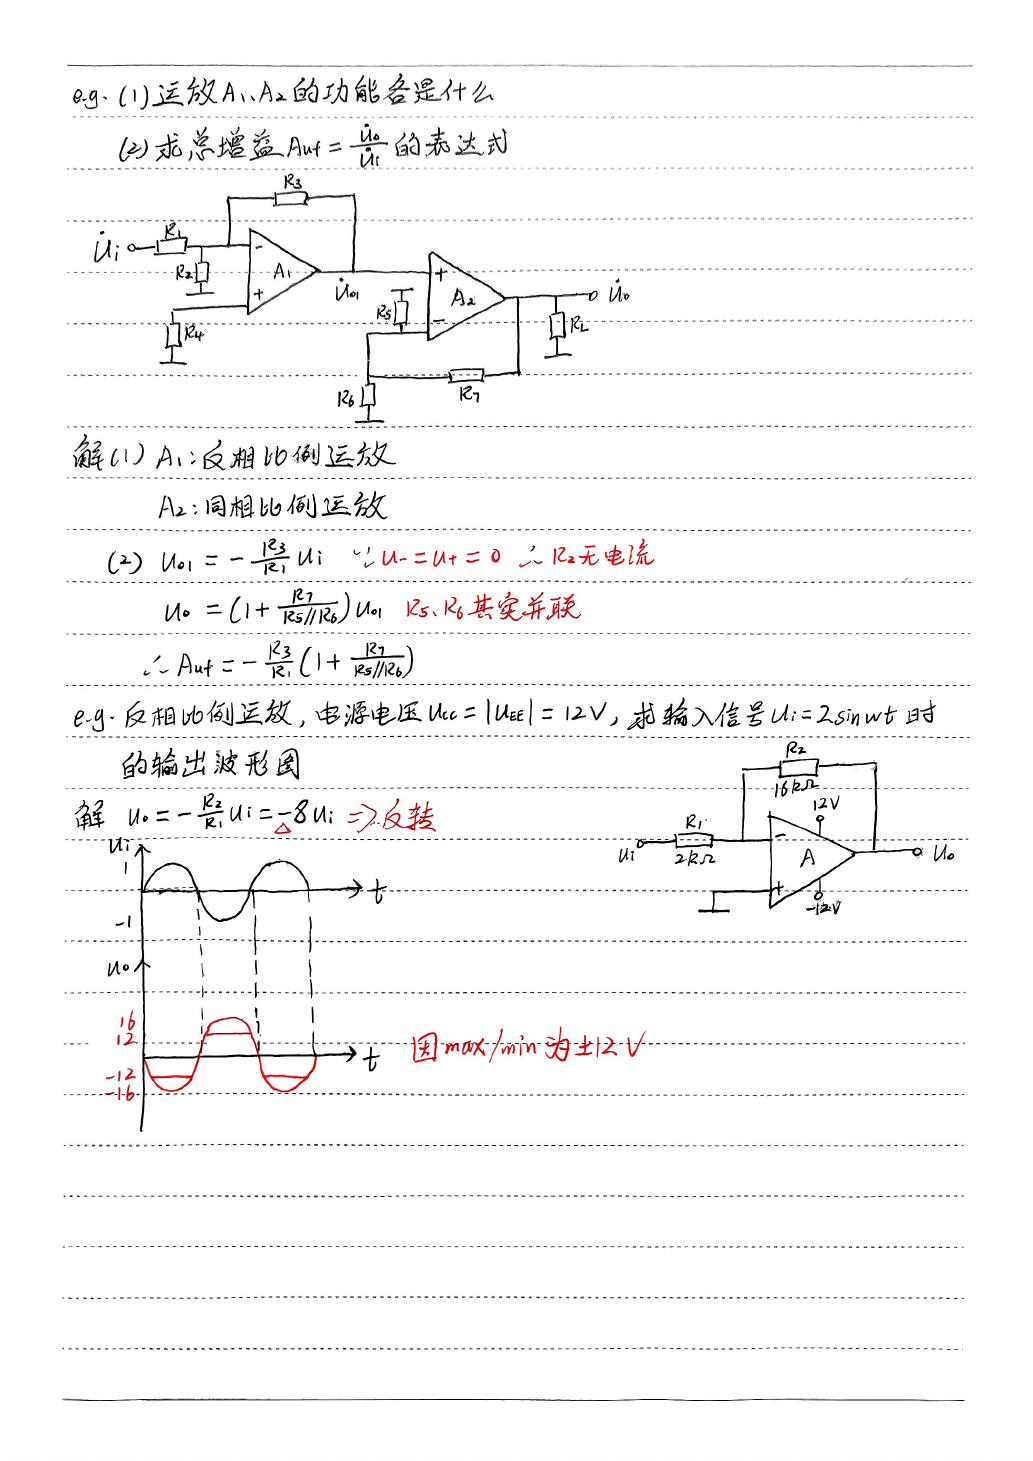 e.g. (1) 运放A₁、A₂的功能各是什么
(2) 求总增益Auf = U̇o/U̇i 的表达式
R3
R1
U̇i
R2
A1
-
+
R4
U̇o1
+
A2
-
R5
U̇o
RL
R6
R7
解(1) A₁:反相比例运放
A₂:同相比例运放
(2) Uo1 = - R3/R1 Ui ∵U- = U+ = 0 ∴R2无电流
Uo = (1 + R7/(R5//R6))Uo1 R5、R6其实并联
∴ Auf = - R3/R1 (1 + R7/(R5//R6))
e.g. 反相比例运放, 电源电压Ucc = |UEE| = 12V, 求输入信号Ui = 2sinwt时
的输出波形图
解 Uo = - R2/R1 Ui = -8Ui ⇒反转
R2
16kΩ
12V
R1
Ui
2kΩ
-
A
+
Uo
-12V
Ui
1
t
-1
Uo
16
12
t
-12
-16
因max/min为±12V